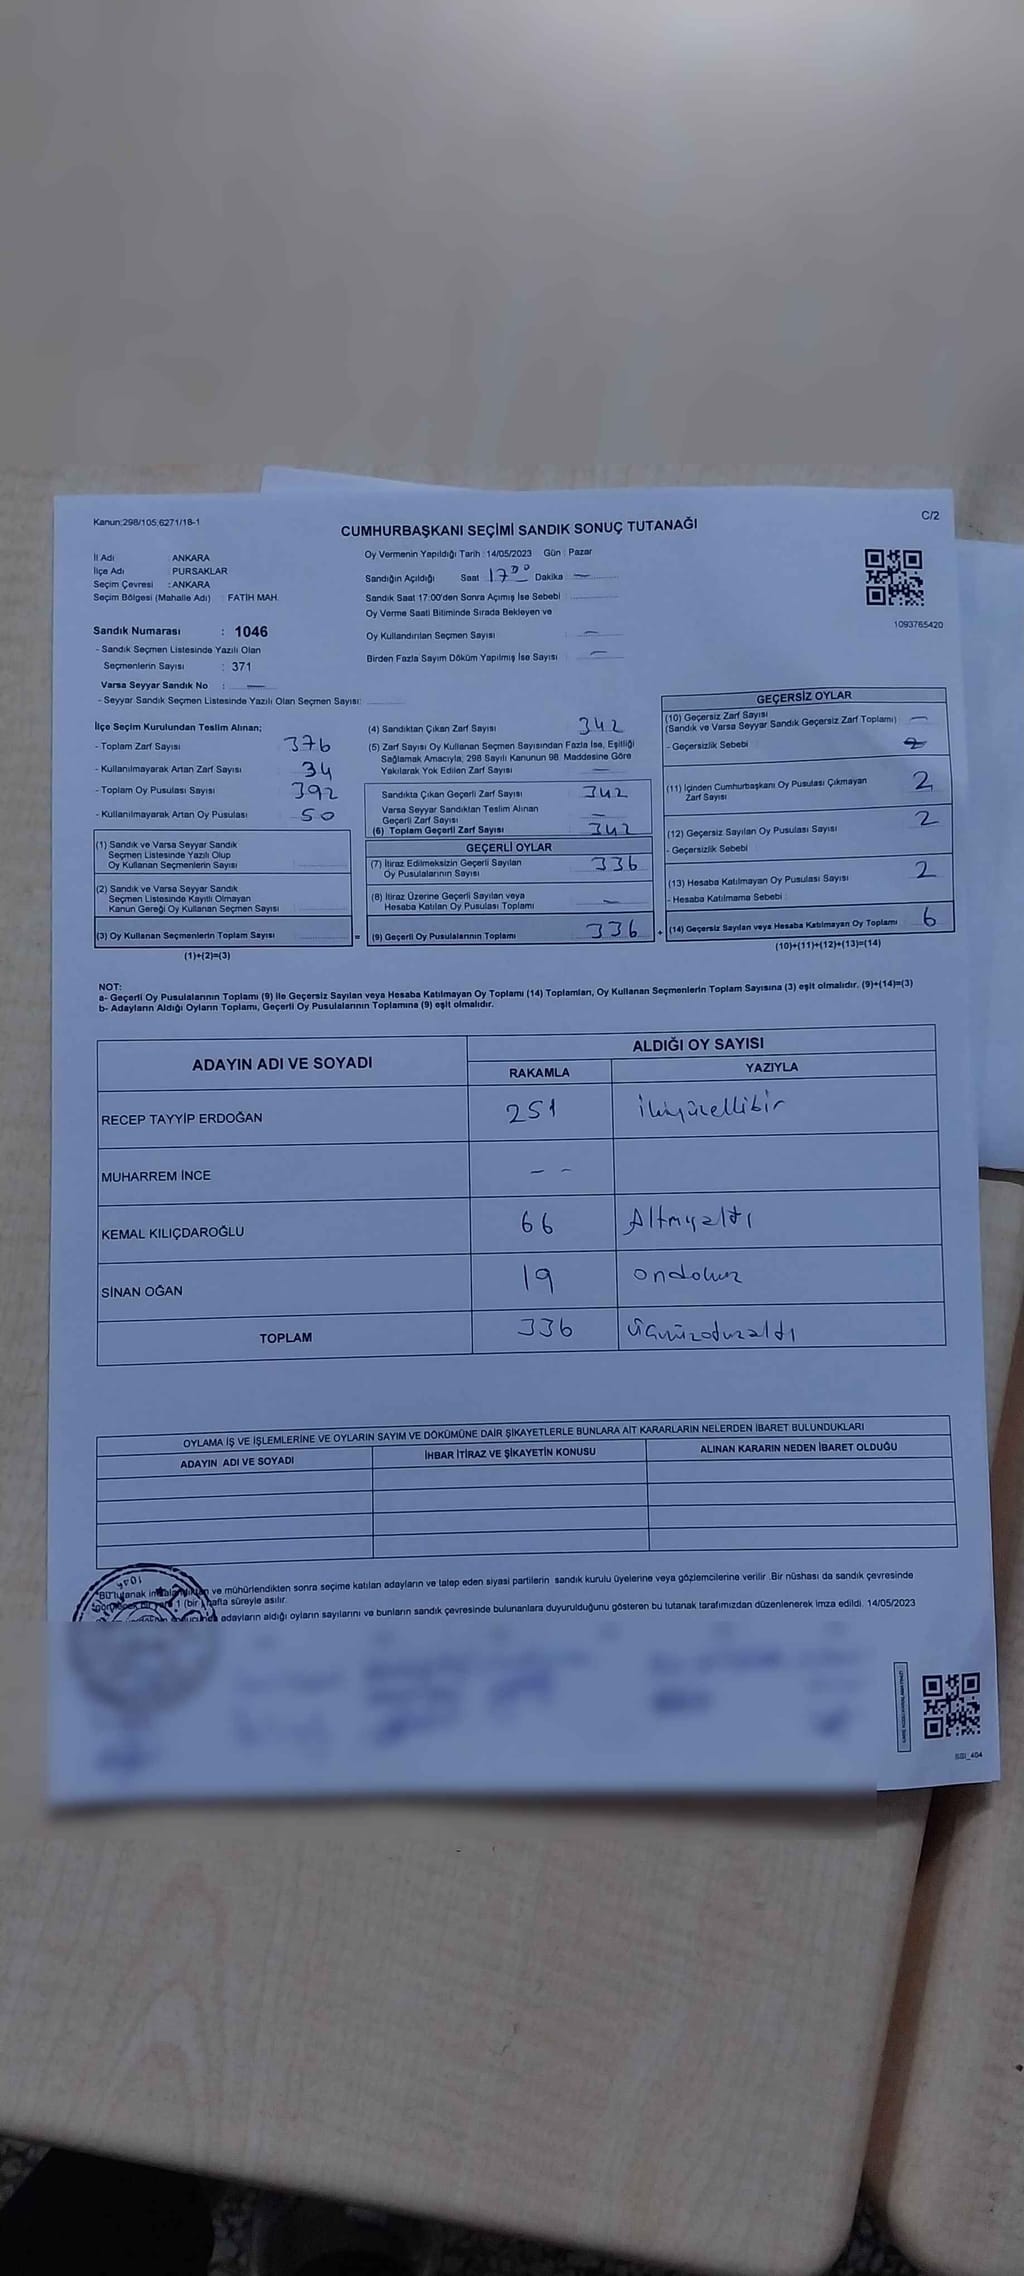 Kanun:298/105;6271/18-1
C/2
CUMHURBAŞKANI SEÇİMİ SANDIK SONUÇ TUTANAĞI
İl Adı : ANKARA
İlçe Adı : PURSAKLAR
Seçim Çevresi : ANKARA
Seçim Bölgesi (Mahalle Adı) : FATİH MAH.
Sandık Numarası : 1046
- Sandık Seçmen Listesinde Yazılı Olan
Seçmenlerin Sayısı : 371
Varsa Seyyar Sandık No : —
- Seyyar Sandık Seçmen Listesinde Yazılı Olan Seçmen Sayısı:
Oy Vermenin Yapıldığı Tarih : 14/05/2023 Gün : Pazar
Sandığın Açıldığı Saat 17:00 Dakika —
Sandık Saat 17:00'den Sonra Açımış İse Sebebi :
Oy Verme Saati Bitiminde Sırada Bekleyen ve
Oy Kullandırılan Seçmen Sayısı : —
Birden Fazla Sayım Döküm Yapılmış İse Sayısı : —
1093765420
İlçe Seçim Kurulundan Teslim Alınan;
- Toplam Zarf Sayısı 376
- Kullanılmayarak Artan Zarf Sayısı 34
- Toplam Oy Pusulası Sayısı 392
- Kullanılmayarak Artan Oy Pusulası 50
(1) Sandık ve Varsa Seyyar Sandık
Seçmen Listesinde Yazılı Olup
Oy Kullanan Seçmenlerin Sayısı
(2) Sandık ve Varsa Seyyar Sandık
Seçmen Listesinde Kayıtlı Olmayan
Kanun Gereği Oy Kullanan Seçmen Sayısı
(3) Oy Kullanan Seçmenlerin Toplam Sayısı
(1)+(2)=(3)
(4) Sandıktan Çıkan Zarf Sayısı 342
(5) Zarf Sayısı Oy Kullanan Seçmen Sayısından Fazla İse, Eşitliği
Sağlamak Amacıyla, 298 Sayılı Kanunun 98. Maddesine Göre
Yakılarak Yok Edilen Zarf Sayısı —
Sandıkta Çıkan Geçerli Zarf Sayısı 342
Varsa Seyyar Sandıktan Teslim Alınan
Geçerli Zarf Sayısı —
(6) Toplam Geçerli Zarf Sayısı 342
GEÇERLİ OYLAR
(7) İtiraz Edilmeksizin Geçerli Sayılan
Oy Pusulalarının Sayısı 336
(8) İtiraz Üzerine Geçerli Sayılan veya
Hesaba Katılan Oy Pusulası Toplamı —
= (9) Geçerli Oy Pusulalarının Toplamı 336
GEÇERSİZ OYLAR
(10) Geçersiz Zarf Sayısı
(Sandık ve Varsa Seyyar Sandık Geçersiz Zarf Toplamı) —
- Geçersizlik Sebebi
(11) İçinden Cumhurbaşkanı Oy Pusulası Çıkmayan
Zarf Sayısı 2
(12) Geçersiz Sayılan Oy Pusulası Sayısı 2
- Geçersizlik Sebebi
(13) Hesaba Katılmayan Oy Pusulası Sayısı 2
- Hesaba Katılmama Sebebi
+ (14) Geçersiz Sayılan veya Hesaba Katılmayan Oy Toplamı 6
(10)+(11)+(12)+(13)=(14)
NOT:
a- Geçerli Oy Pusulalarının Toplamı (9) ile Geçersiz Sayılan veya Hesaba Katılmayan Oy Toplamı (14) Toplamları, Oy Kullanan Seçmenlerin Toplam Sayısına (3) eşit olmalıdır. (9)+(14)=(3)
b- Adayların Aldığı Oyların Toplamı, Geçerli Oy Pusulalarının Toplamına (9) eşit olmalıdır.
ADAYIN ADI VE SOYADI
ALDIĞI OY SAYISI
RAKAMLA YAZIYLA
RECEP TAYYİP ERDOĞAN 251 ikiyüzellibir
MUHARREM İNCE - -
KEMAL KILIÇDAROĞLU 66 Altmışaltı
SİNAN OĞAN 19 ondokuz
TOPLAM 336 üçyüzotuzaltı
OYLAMA İŞ VE İŞLEMLERİNE VE OYLARIN SAYIM VE DÖKÜMÜNE DAİR ŞİKAYETLERLE BUNLARA AİT KARARLARIN NELERDEN İBARET BULUNDUKLARI
ADAYIN ADI VE SOYADI İHBAR İTİRAZ VE ŞİKAYETİN KONUSU ALINAN KARARIN NEDEN İBARET OLDUĞU
1046
Bu tutanak imzalandıktan ve mühürlendikten sonra seçime katılan adayların ve talep eden siyasi partilerin sandık kurulu üyelerine veya gözlemcilerine verilir. Bir nüshası da sandık çevresinde
1 (bir) hafta süreyle asılır.
adayların aldığı oyların sayılarını ve bunların sandık çevresinde bulunanlara duyurulduğunu gösteren bu tutanak tarafımızdan düzenlenerek imza edildi. 14/05/2023
SSI_404